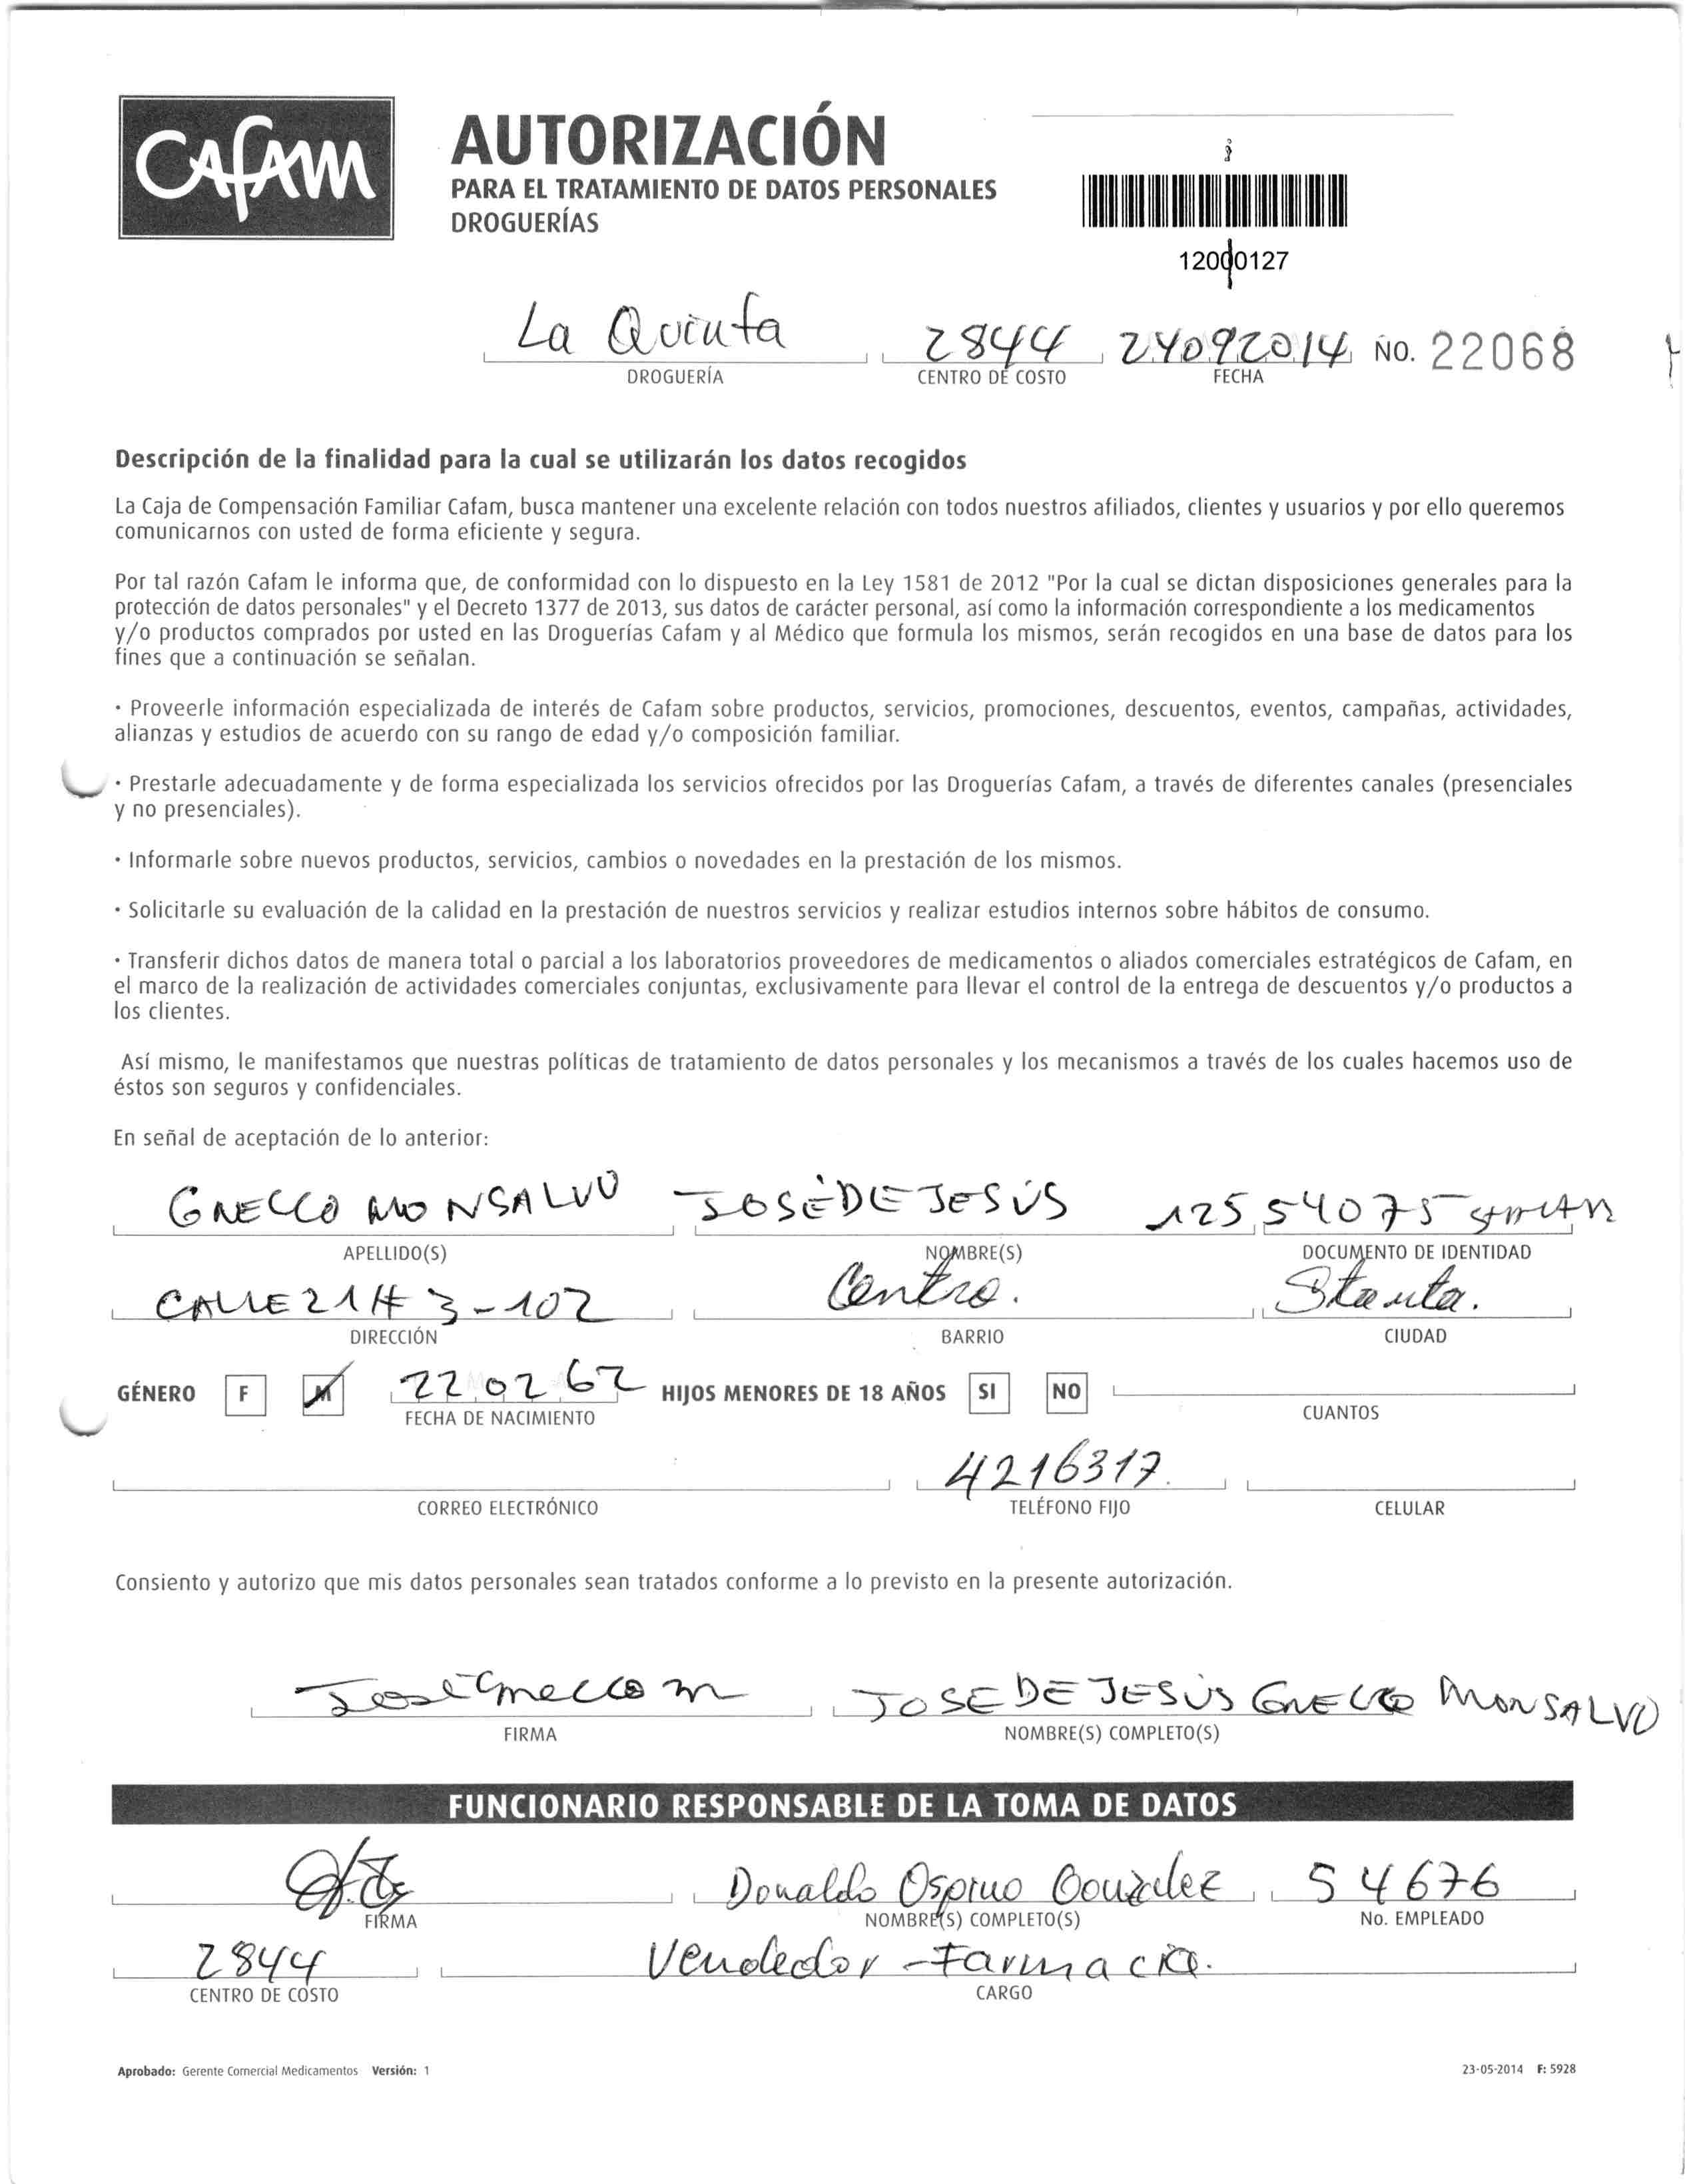 Cafam
AUTORIZACIÓN
PARA EL TRATAMIENTO DE DATOS PERSONALES
DROGUERÍAS
12000127
La Quinta 2844 24092014 NO. 22068
DROGUERÍA CENTRO DE COSTO FECHA
Descripción de la finalidad para la cual se utilizarán los datos recogidos
La Caja de Compensación Familiar Cafam, busca mantener una excelente relación con todos nuestros afiliados, clientes y usuarios y por ello queremos
comunicarnos con usted de forma eficiente y segura.
Por tal razón Cafam le informa que, de conformidad con lo dispuesto en la Ley 1581 de 2012 "Por la cual se dictan disposiciones generales para la
protección de datos personales" y el Decreto 1377 de 2013, sus datos de carácter personal, así como la información correspondiente a los medicamentos
y/o productos comprados por usted en las Droguerías Cafam y al Médico que formula los mismos, serán recogidos en una base de datos para los
fines que a continuación se señalan.
· Proveerle información especializada de interés de Cafam sobre productos, servicios, promociones, descuentos, eventos, campañas, actividades,
alianzas y estudios de acuerdo con su rango de edad y/o composición familiar.
· Prestarle adecuadamente y de forma especializada los servicios ofrecidos por las Droguerías Cafam, a través de diferentes canales (presenciales
y no presenciales).
· Informarle sobre nuevos productos, servicios, cambios o novedades en la prestación de los mismos.
· Solicitarle su evaluación de la calidad en la prestación de nuestros servicios y realizar estudios internos sobre hábitos de consumo.
· Transferir dichos datos de manera total o parcial a los laboratorios proveedores de medicamentos o aliados comerciales estratégicos de Cafam, en
el marco de la realización de actividades comerciales conjuntas, exclusivamente para llevar el control de la entrega de descuentos y/o productos a
los clientes.
Así mismo, le manifestamos que nuestras políticas de tratamiento de datos personales y los mecanismos a través de los cuales hacemos uso de
éstos son seguros y confidenciales.
En señal de aceptación de lo anterior:
GNECCO MONSALVO JOSÉ DE JESÚS 12554075
APELLIDO(S) NOMBRE(S) DOCUMENTO DE IDENTIDAD
CALLE 21 # 3-102 Centro. Sta uta.
DIRECCIÓN BARRIO CIUDAD
GÉNERO F M 220262 HIJOS MENORES DE 18 AÑOS SI NO
FECHA DE NACIMIENTO CUANTOS
4216317.
CORREO ELECTRÓNICO TELÉFONO FIJO CELULAR
Consiento y autorizo que mis datos personales sean tratados conforme a lo previsto en la presente autorización.
José Gnecco m JOSE DE JESÚS GNECCO MONSALVO
FIRMA NOMBRE(S) COMPLETO(S)
FUNCIONARIO RESPONSABLE DE LA TOMA DE DATOS
Donaldo Ospino Gonzalez 54676
FIRMA NOMBRE(S) COMPLETO(S) No. EMPLEADO
2844 Vendedor - Farmacia.
CENTRO DE COSTO CARGO
Aprobado: Gerente Comercial Medicamentos Versión: 1 23-05-2014 F: 5928